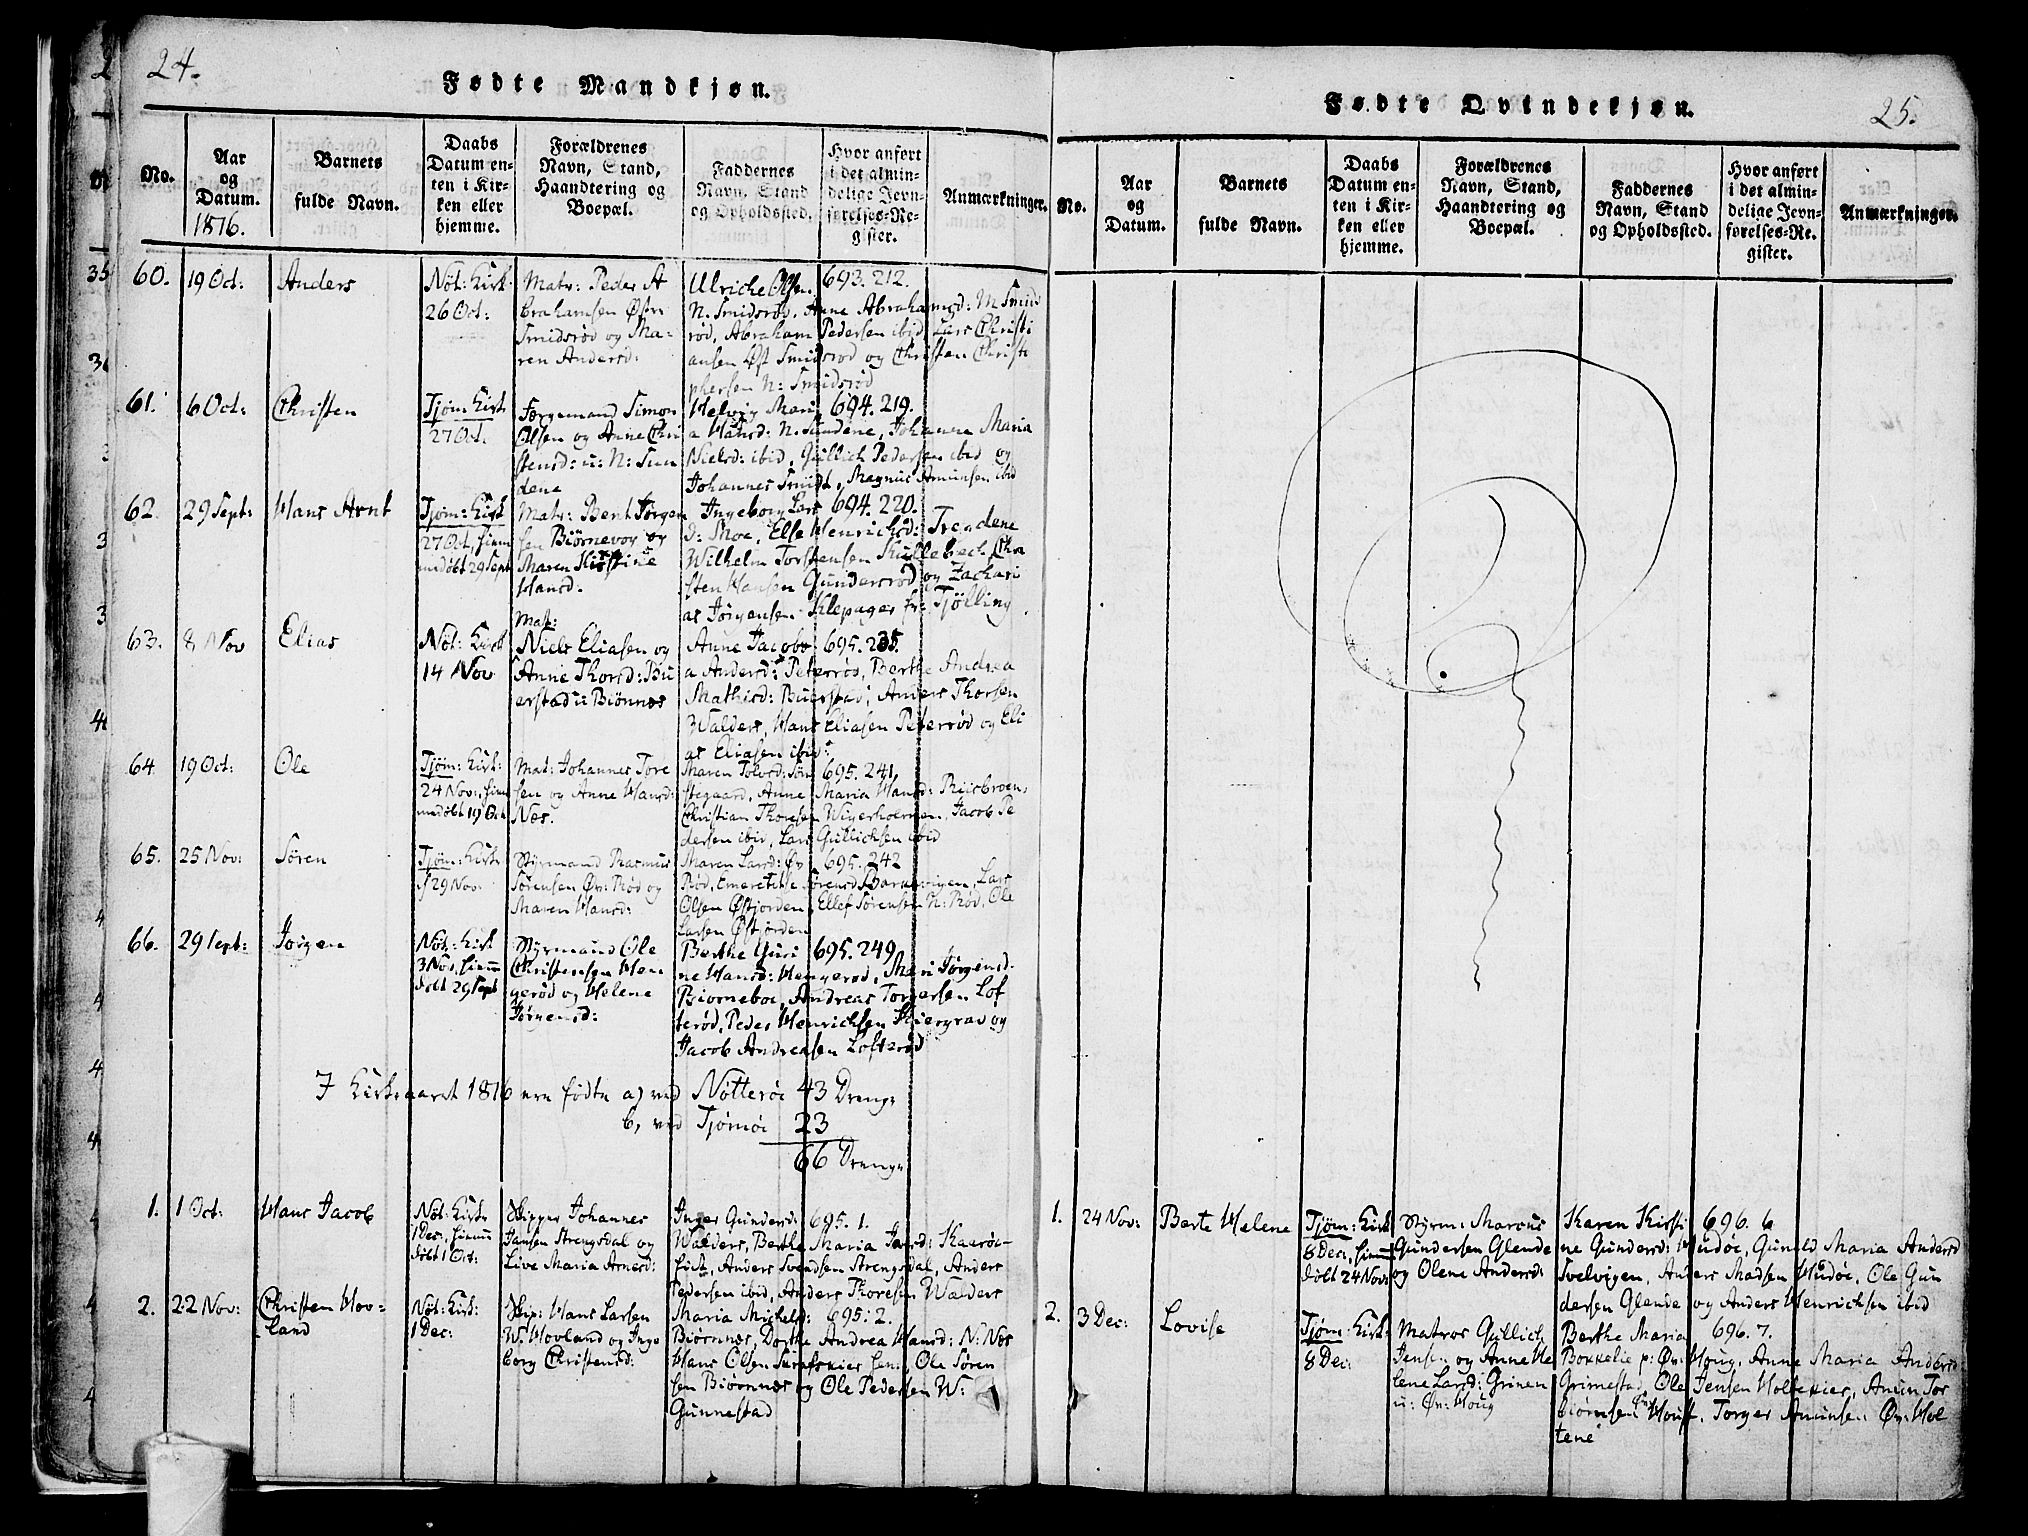 24.
Fødte Mandkjøn.
No.
Aar
og
Datum.
1816.
Barnets
fulde Navn.
Daabs
Datum en-
ten i Kir-
ken eller
hjemme.
Forældrenes
Navn, Stand,
Haandtering og
Boepæl.
Faddernes
Navn, Stand
og Opholdssted.
Hvor anført
i det almin-
delige Jevn-
førelses-Re-
gister.
Anmærkninger.
60.
19 Oct:
Anders
Nöt: Kirk:
26 Oct:
Matr: Peder A
brahamsen Østre
Smidsrød og Ma-
ren Andersd:
Ulriche Olsen 693. 212.
N. Smidsrød, Anne Abrahamsd: N Smids
rød, Abraham Pedersen ibid, Lars Christi
ansen Øst Smidsrød og Christen Christo
phersen N: Smidsrød
61.
6 Oct:
Christen
Tjøm: Kirk
27 Oct.
Færgemand Simon
Olsen og Anne Chri
stensd: u: N: Sun
dene
Helvig Mari 694. 219.
a Hansd: N. Sundene, Johanne Maria
Nielsd: ibid, Gullich Pedersen ibid og
Johannes Smidt, Magnus Amunsen ibid
62.
29 Sept:
Hans Arnt
Tjøm: Kirk
27 Oct, hiem
medøbt 29 Sept
Matr: Bent Jørgen
sen Biørnevog og
Maren Kirstine
Hansd:
Ingeborg Lars 694. 220.
d: Moe, Else Henrichsd: Trendene
Wilhelm Torstensen Kullebech, Chri
sten Hansen Gundersrød og Zachari
as Jørgensen Klepager fr: Tjölling
63.
8 Nov
Elias
Nöt: Kirk
14 Nov
Mat:
Niels Eliasen og
Anne Thorsd: Bu
erstad u: Biønnes
Anne Jacobe 695. 235.
a Andersd: Petersrød, Berthe Andrea
Mathisd: Buerstad, Anders Thorsen
Walders, Hans Eliasen Petersrød og Eli
as Eliasen ibid:
64.
19 Oct:
Ole
Tjøm: Kirk:
24 Nov:, hiem
medøbt 19 Oct
Mat: Johannes Tore
sen og Anne Hansd:
Næs.
Maren Tolvsd: Søn 695. 241.
stegaard, Anne Maria Hansd: Riisbroen,
Christian Thoresen Wigerholmen, Jacob Pe
dersen ibid, Lars Gullichsen ibid
65.
25 Nov:
Sören
Tjøm: Kirk:
29 Nov:
Styrmand Rasmus
Sørensen Øv: Rød og
Maren Hansd:
Maren Larsd: Øv 695. 242
Rød, Emerentse Sørensd Barkevigen, Lars
Olsen Østjorden, Ellef Sørensen N: Rød, Ole
Larsen Østjorden
66.
29 Sept:
Jørgen
Nöt: Kirk
3 Nov, hiem
døbt 29 Sept
Styrmand Ole
Christensen Hen
gerød og Helene
Jørgensd:
Berthe Guri 695. 249.
ne Hansd: Hengerød, Mari Jørgensd:
Biørneboe, Andreas Torgersen Lof
terød, Peder Henrichsen Kiergrav og
Jacob Andreasen Lofterød
I Kirkeaaret 1816 ere fødte a) ved Nötterøe 43 Drenge
b, ved Tjømøe 23
66 Drenge
1.
1 Oct:
Hans Jacob
Nöt: Kirke
1 Dec:, hiem
døbt 1 Oct:
Skipper Johannes
Hansen Strengsdal og
Live Maria Arnesd:
Inger Gundersd: 695. 1.
Walders, Berthe Maria Jansd: Kaarøe-
, Anders Svendsen Strengsdal, Anders
Pedersen ibid, Anders Thoresen Walders
2.
22 Nov:
Christen Hov-
land
Nöt: Kirk:
1 Dec:
Skip: Hans Larsen
W: Hovland og Inge
borg Christensd:
Maria Michelsd: 695. 2.
Biørnnes, Dorthe Andrea Hansd: N: Nes
Hans Olsen , Ole Sören
sen Biørnnes og Ole Pedersen W:
Gunnestad
Fødte Qvindekjøn.
25.
No.
Aar
og
Datum.
Barnets
fulde Navn.
Daabs
Datum en-
ten i Kir-
ken eller
hjemme.
Forældrenes
Navn, Stand,
Haandtering og
Boepæl.
Faddernes
Navn, Stand
og Opholdssted.
Hvor anført
i det almin-
delige Jevn-
førelses-Re-
gister.
Anmærkninger.
1.
24 Nov:
Berte Helene
Tjøm: Kirk
8 Dec:, hiem
døbt 24 Nov:
Styrm: Marcus
Gundersen Glende
og Olene Andersd:
Karen Kirsti 696. 6
ne Gundersd: Hudøe, Gunild Maria Andersd
Tvelvigen, Anders Madsen Hudøe, Ole Gun
dersen Glende og Anders Henrichsen ibid
2.
3 Dec:
Lovise
Tjøm: Kirk:
8 Dec:
Matros Gullich
Jensen og Anne He
lene Larsd: Grinen
u: Øv: Houg
Berthe Maria 696. 7.
Bokkelie p: Øv: Houg, Anne Maria Andersd:
Grimestad, Ole Jensen Holtekier, Amun Tor
biørnsen Houg, Torger Amunsen Øv: Hol
tene